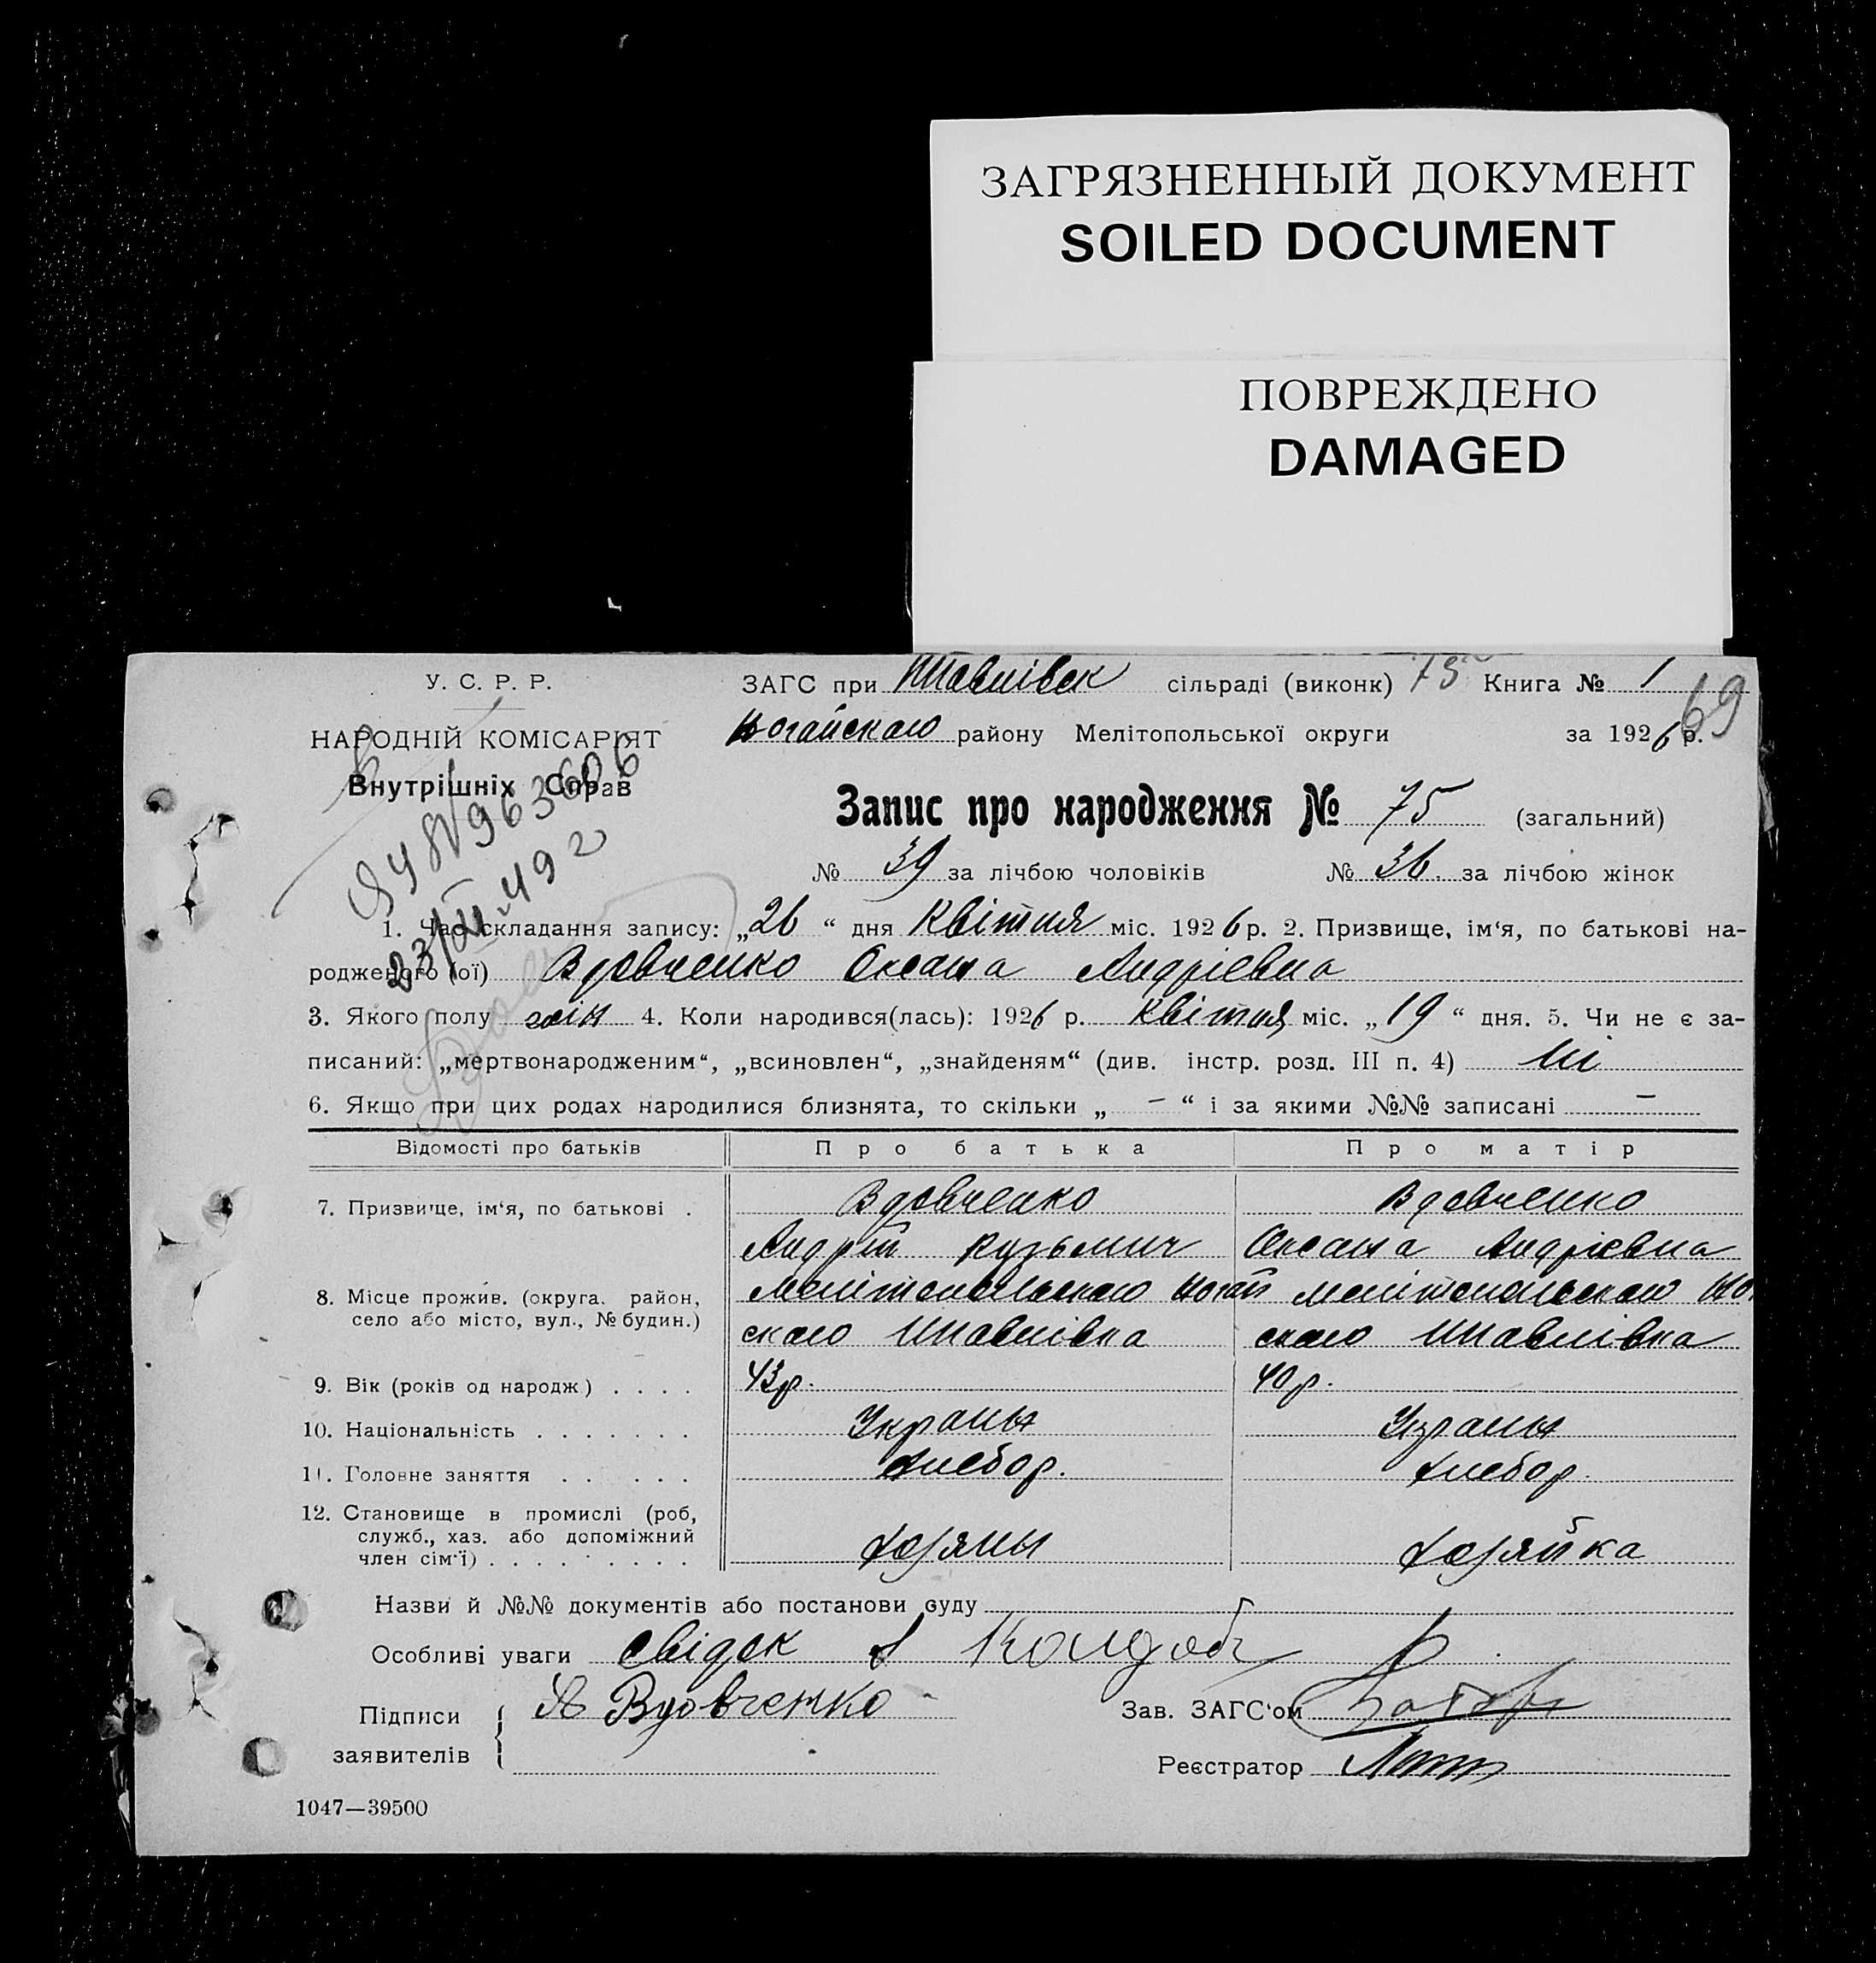 ЗАГРЯЗНЕННЫЙ ДОКУМЕНТ
SOILED DOCUMENT
ПОВРЕЖДЕНО
DAMAGED
У. С. Р. Р.
НАРОДНІЙ КОМІСАРІЯТ
Внутрішніх Справ
ЗАГС при сільраді (виконк) 75 Книга № 1
69
Ногайскаго району Мелітопольської округи за 1926 р.
Запис про народження № 75 (загальний)
№ 39 за лічбою чоловіків № 36. за лічбою жінок
1. Час складання запису: „26“ дня Квітня міс. 1926 р. 2. Призвище, ім‘я, по батькові на-
родженого (ої) Вдовченко Оксана Андрієвна
3. Якого полу жін 4. Коли народився(лась): 1926 р. Квітня міс. „19“ дня. 5. Чи не є за-
писаний: „мертвонародженим“, „всиновлен“, „знайденям“ (див. інстр. розд. III п. 4) Ні
6. Якщо при цих родах народилися близнята, то скільки „ – “ і за якими №№ записані –
Відомості про батьків Про батька Про матір
7. Призвище, ім‘я, по батькові . Вдовченко Вдовченко
Андрій Кузьмич Оксана Андрієвна
8. Місце прожив. (округа. район, Мелітопольскаго Ногай Мелітопольскаго Но
село або місто, вул., № будин.) скаго скаго
9. Вік (років од народж) . . . . 43 р. 40 р.
10. Національність . . . . . . . Украин Украин
11. Головне заняття . . . . . Хлебор. Хлебор.
12. Становище в промислі (роб,
служб., хаз. або допоміжний
член сім‘ї) . . . . . . . . . Хозяин Хозяйка
Назви й №№ документів або постанови суду
Особливі уваги Свідок
Підписи заявителів А Вдовченко Зав. ЗАГС‘ом
Реєстратор
1047—39500